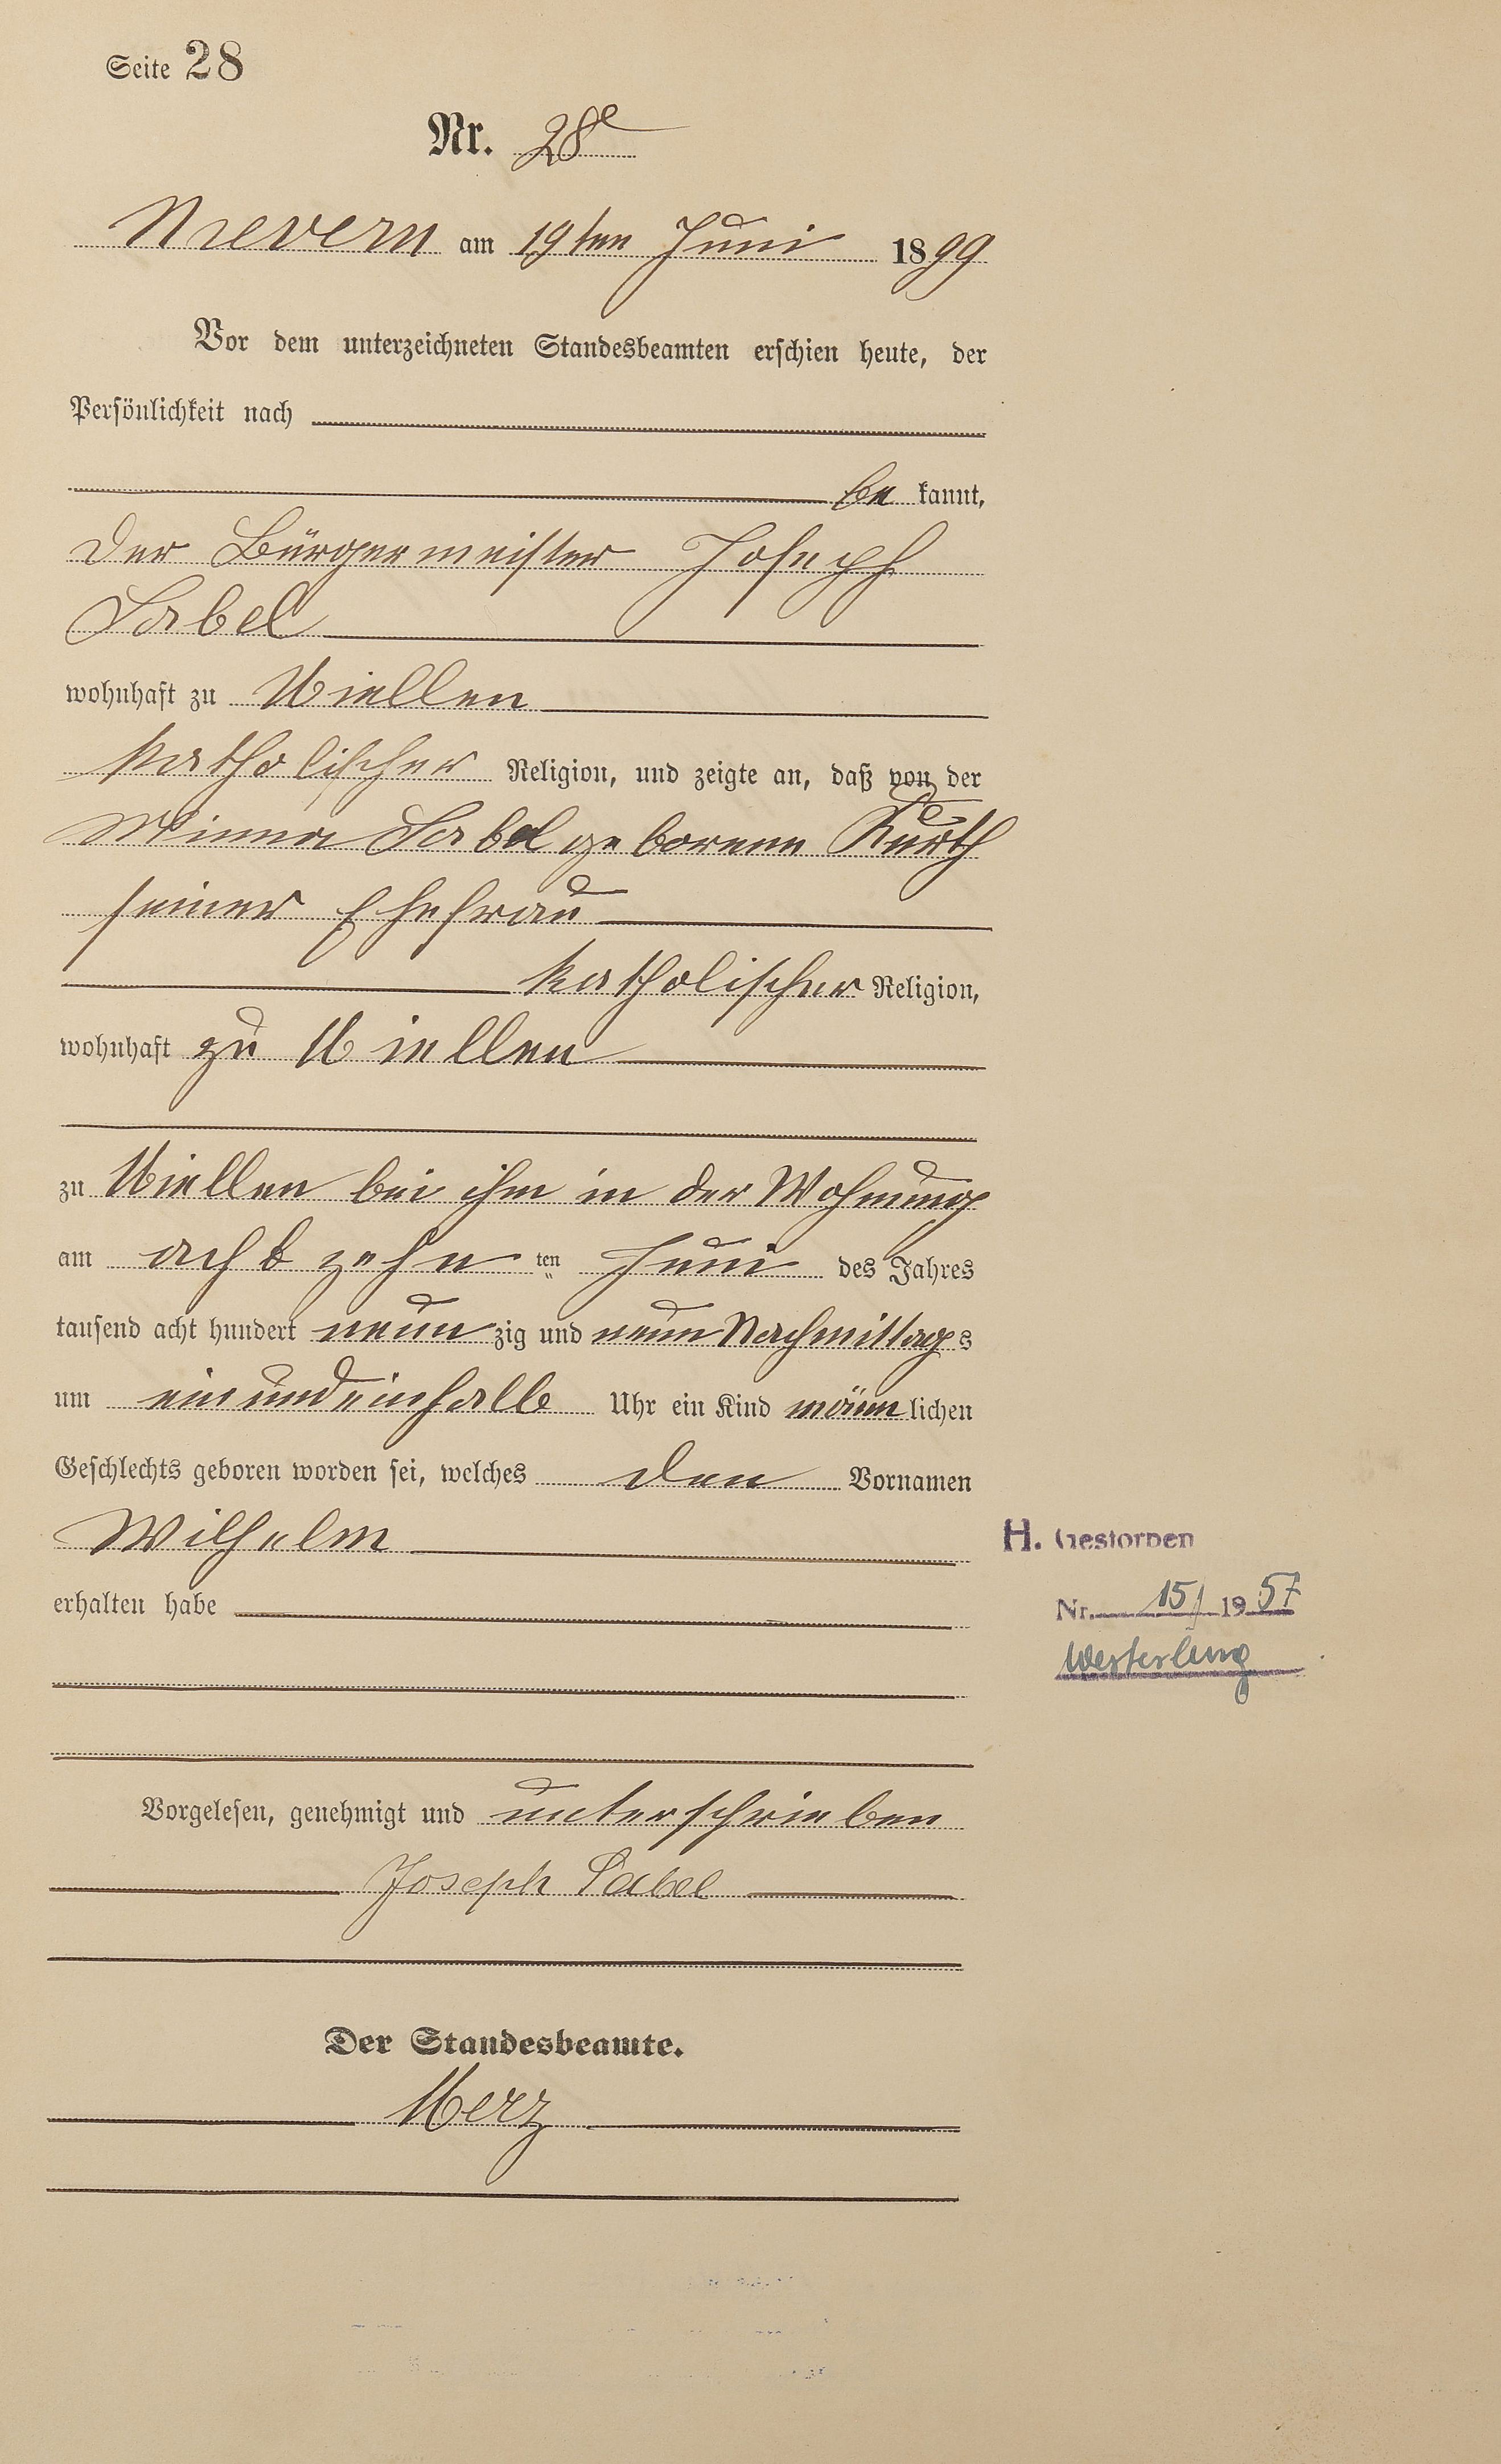 Seite 28
Nr. 28
Nievern am 19ten Juni 1899
Vor dem unterzeichneten Standesbeamten erschien heute, der
Persönlichkeit nach
be kannt,
der Bürgermeister Joseph
Sabel
wohnhaft zu Miellen
katholischer Religion, und zeigte an, daß von der
Minna Sabel geborene Kurth
seiner Ehefrau
katholischer Religion,
wohnhaft zu Miellen
zu Miellen bei ihm in der Wohnung
am achtzehn ten Juni des Jahres
tausend acht hundert neun zig und neun Nachmittags
um einundeinhalb Uhr ein Kind männlichen
Geschlechts geboren worden sei, welches den Vornamen
Wilhelm
H. Gestorben
erhalten habe
Nr. 15/ 1957
Vorgelesen, genehmigt und unterschrieben
Joseph Sabel
Der Standesbeamte.
Merz